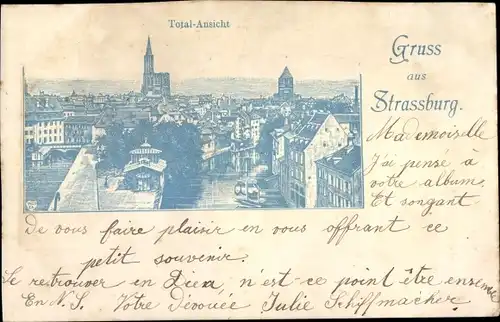 Total-Ansicht
Gruss
aus
Strassburg.
Mademoiselle
J'ai pensé à
votre album.
Et songant
De vous faire plaisir en vous offrant ce
petit souvenir.
Se retrouver en Dieu, n'est-ce point être ensemble
En N.S. Votre Dévouée Julie Schiffmacher